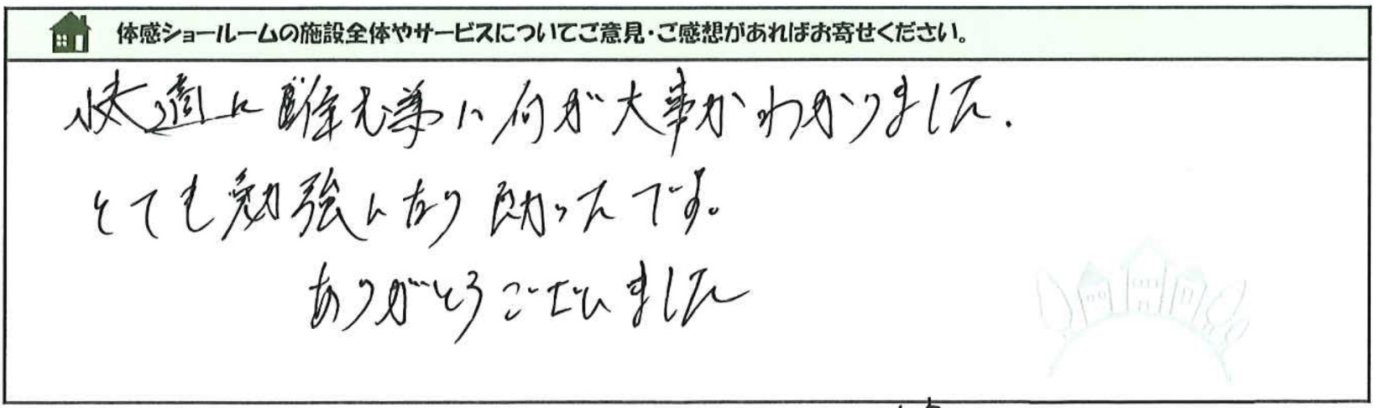 体感ショールームの施設全体やサービスについてご意見・ご感想があればお寄せください。
快適に む事に何が大事かわかりました.
とても勉強になり助ったです。
ありがとうございました